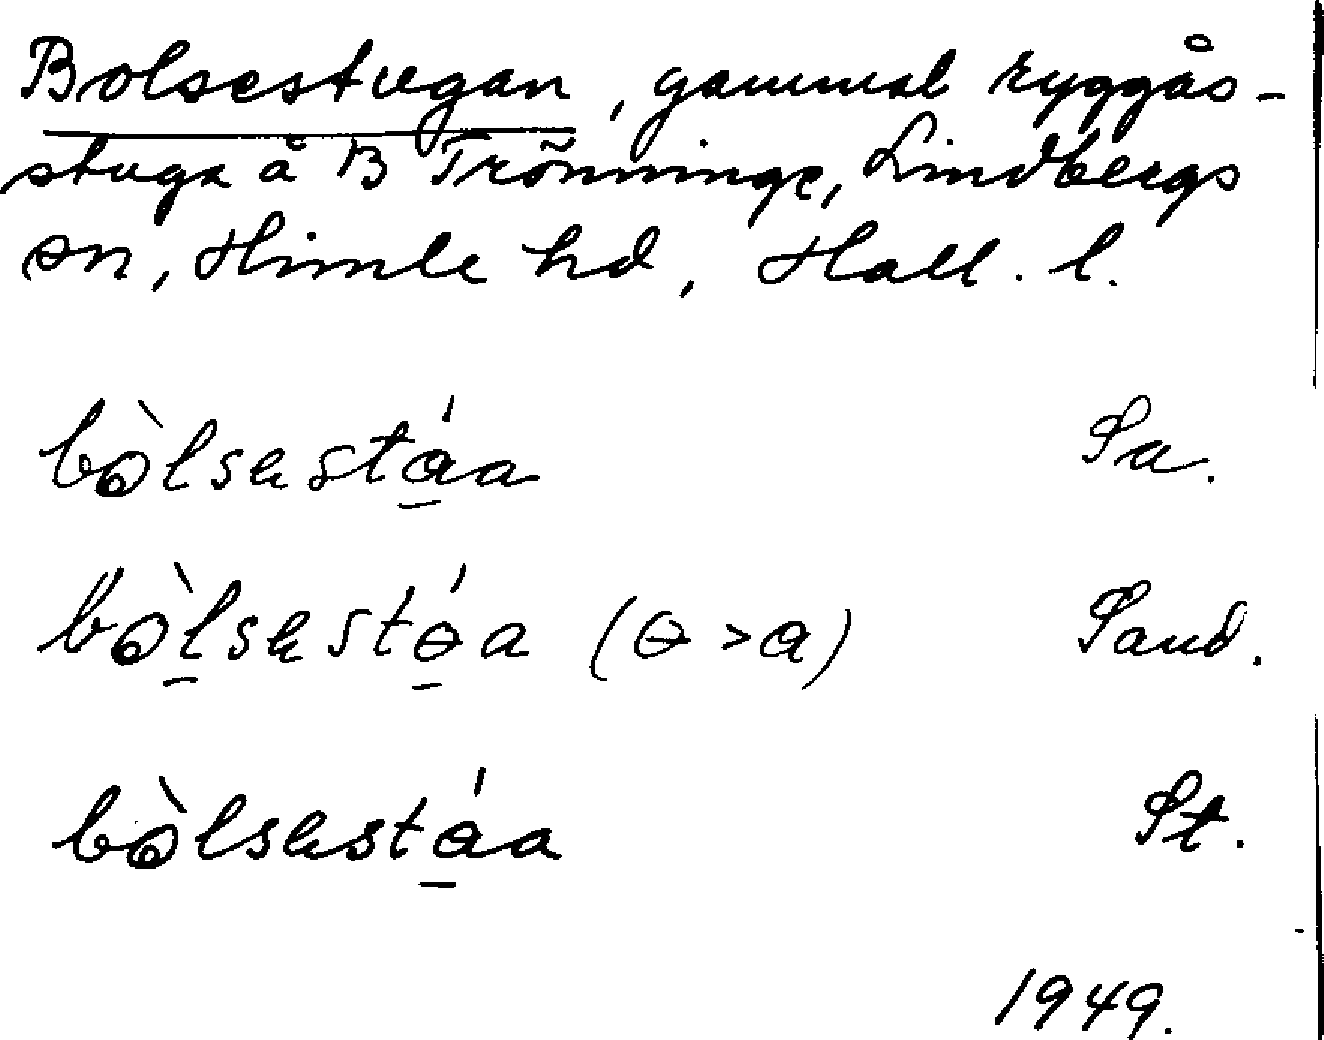 Bolsestugan, gammal ryggås-
stuga å B Trönninge, Lindbergs
sn, Himle hd, Hall. l.
bòlsestáa Sa.
bòlsestɵ́a (ɵ > a) Sand.
bòlsestáa St.
1949.